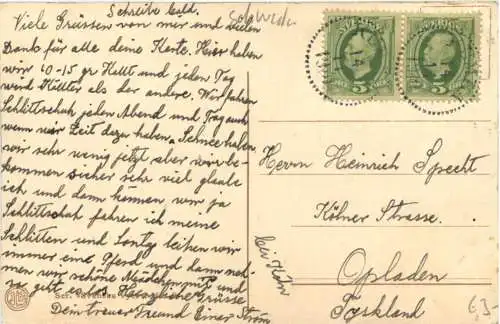 Schreibe bald.
Viele Grüssen von mer und vielen
Dank für alle deine Karte. Hier haben
wir 10-15 gr Kallt und jeden Tag
wird Källter als der andere. Wir fahren
Schlittschuh jeden Abend und Tag auch
wenn wir Zeit dazu haben. Schnee haben
wir sehr wenig jetzt aber wir be-
kommen sicher sehr viel glaube
ich und dann können wir ja
Schlittschuh fahren ich meine
Schlitten und leihen wir
immer eine Pferd und dann neh-
men wir schöne Mädchen mit und
so gut es los Herzliche Grüsse
Dein treuer Freund Einar Ström
SVERIGE
5
SVERIGE
5
Herrn Heinrich Sprecht
Kölner Strasse.
bei Köln
Opladen
Tyskland